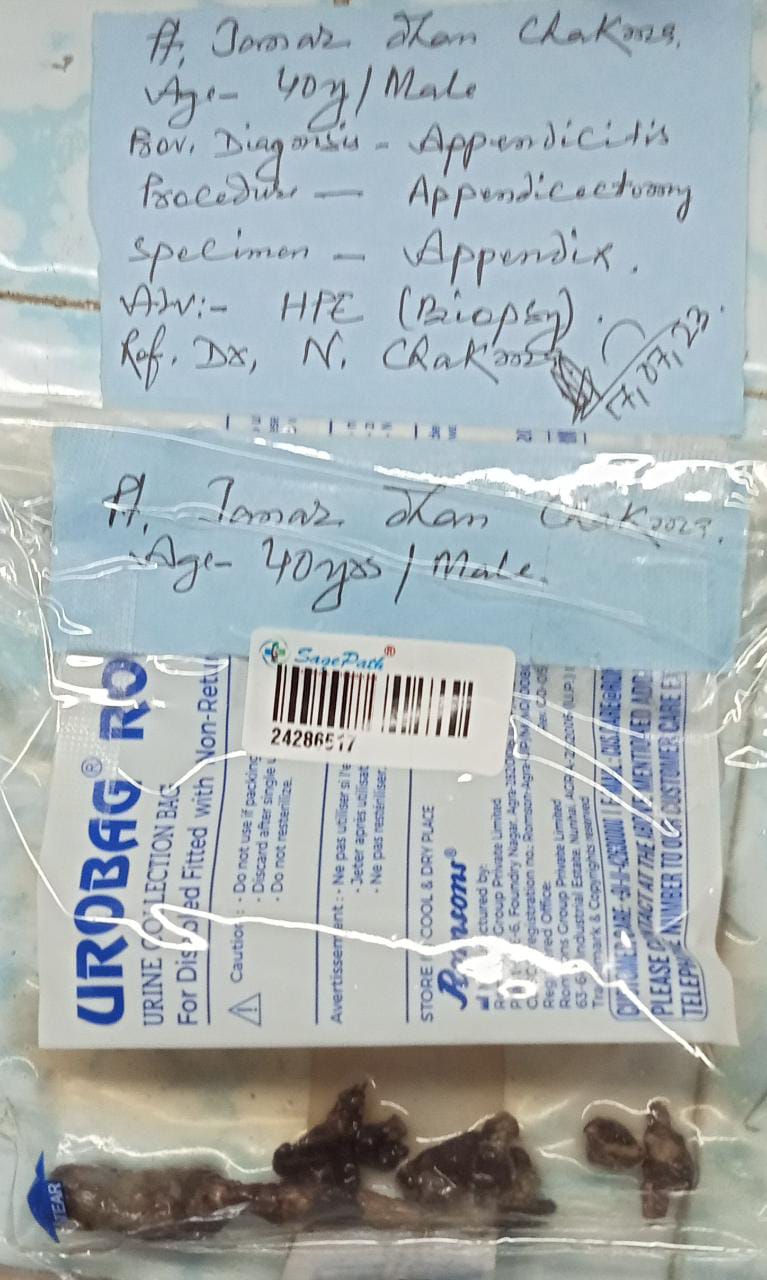 Pt. Jamar dhan Chakma.
Age- 40y/Male
Prov. Diagonsis - Appendicitis
Procedure - Appendicectomy
Specimen - Appendix.
Adv:- HPE (Biopsy).
Ref. Dr. N. Chakma
17,07,23.
Pt. Jamar dhan Chakma.
Age- 40yrs / Male.
SagePath®
24286517
UROBAG® RO
URINE COLLECTION BAG
Fitted with Non-Retu
Caution : · Do not use if packing
· Discard after single u
· Do not resterilize.
Avertissement : · Ne pas utiliser si l'e
· Jeter après utilisat
· Ne pas restériliser.
STORE IN COOL & DRY PLACE
Romsons®
Group Private Limited
Foundry Nagar, Agra-
Office
Group Private Limited
Industrial Estate, Nunhai,
Trademark & Copyrights reserved
PLEASE CONTACT AT THE ABOVE MENTIONED ADD
TELEPHONE NUMBER TO OUR CUSTOMER CARE EX
TEAR